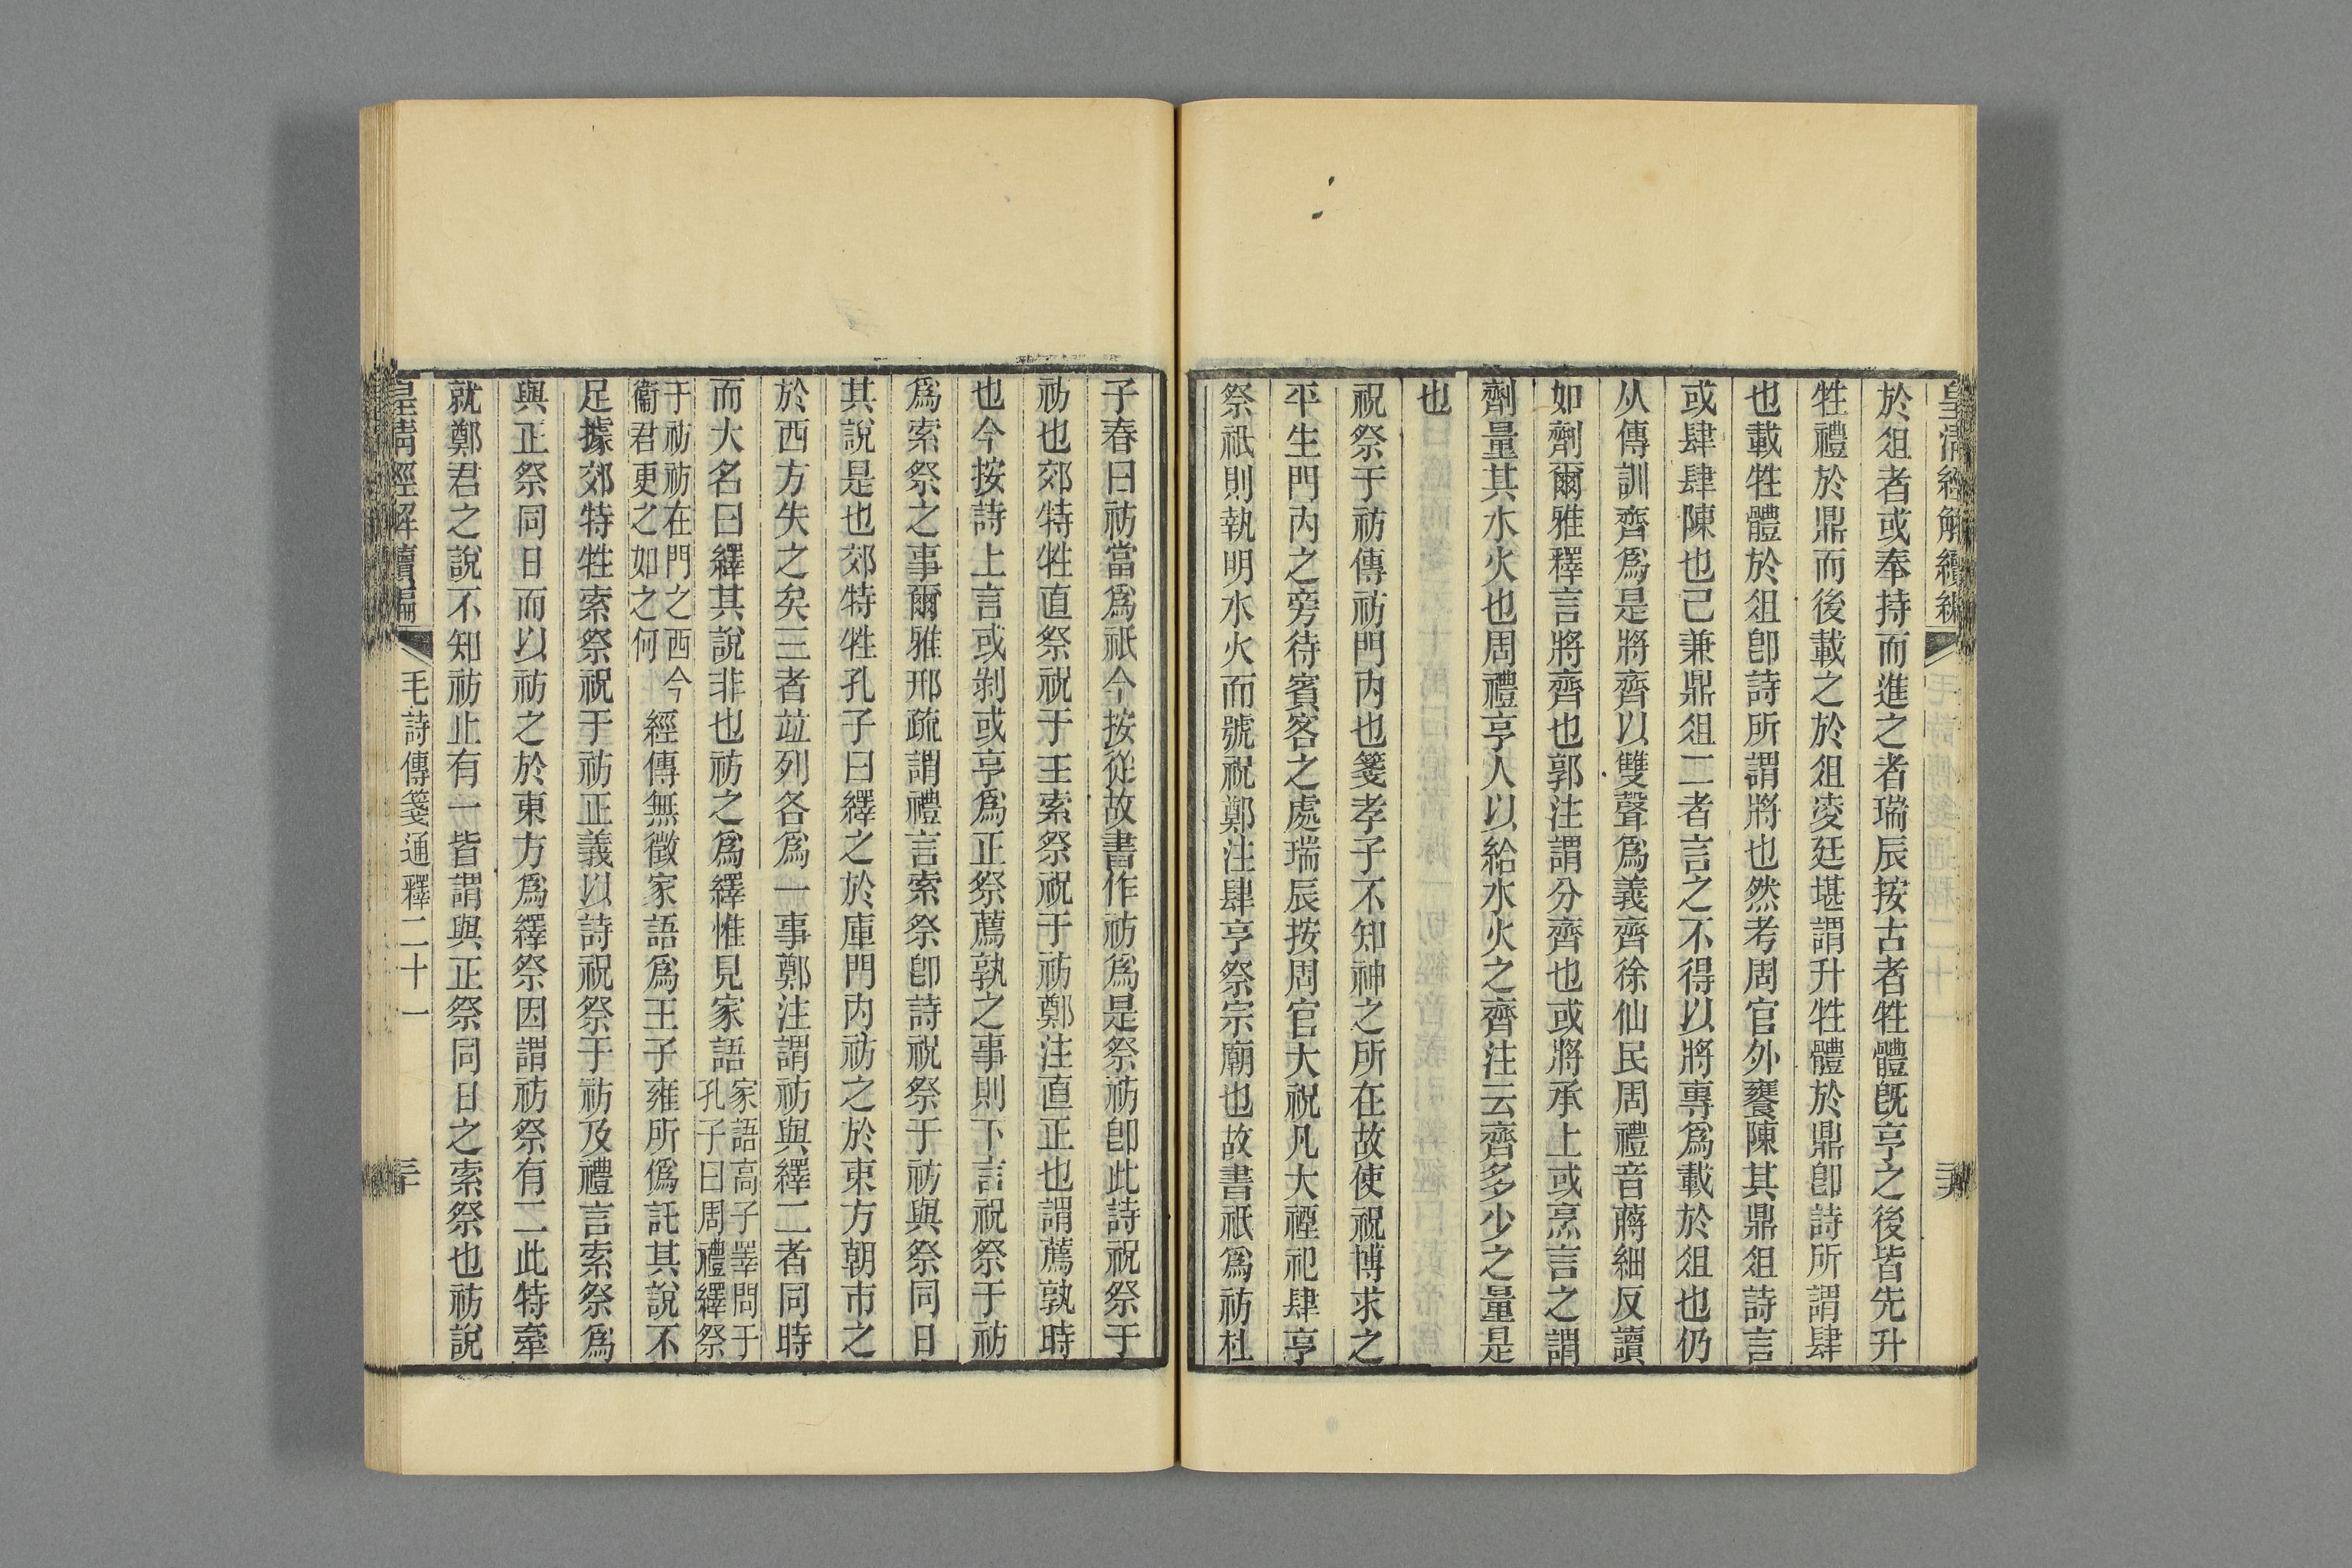 皇清經解續編
於俎者或奉持而進之者瑞辰按古者牲體旣亨之後皆先升
牲禮於鼎而後載之於俎凌廷堪謂升牲體於鼎卽詩所謂肆
也載牲體於俎卽詩所謂將也然考周官外饔陳其鼎俎詩言
或肆肆陳也己兼鼎俎二者言之不得以將專爲載於俎也仍
从傳訓齊爲是將齊以雙聲爲義齊徐仙民周禮音蔣細反讀
如劑爾雅釋言將齊也郭注謂分齊也或將承上或烹言之謂
劑量其水火也周禮亨人以給水火之齊注云齊多少之量是
也
祝祭于祊傳祊門內也箋孝子不知神之所在故使祝博求之
平生門內之旁待賓客之處瑞辰按周官大祝凡大禋祀肆亨
祭祇則執明水火而號祝鄭注肆亨祭宗廟也故書祇爲祊杜
子春曰祊當爲祇今按從故書作祊爲是祭祊卽此詩祝祭于
祊也郊特牲直祭祝于主索祭祝于祊鄭注直正也謂薦孰時
也今按詩上言或剝或亨爲正祭薦孰之事則下言祝祭于祊
爲索祭之事爾雅邢疏謂禮言索祭卽詩祝祭于祊與祭同日
其說是也郊特牲孔子曰繹之於庫門內祊之於東方朝市之
於西方失之矣三者竝列各爲一事鄭注謂祊與繹二者同時
而大名曰繹其說非也祊之爲繹惟見家語家語高子睪問于孔子曰周禮繹祭
于祊祊在門之西今衞君更之如之何經傳無徵家語爲王子雍所僞託其說不
足據郊特牲索祭祝于祊正義以詩祝祭于祊及禮言索祭爲
與正祭同日而以祊之於東方爲繹祭因謂祊祭有二此特牽
就鄭君之說不知祊止有一皆謂與正祭同日之索祭也祊說
皇清經解續編 毛詩傳箋通釋二十一 三十